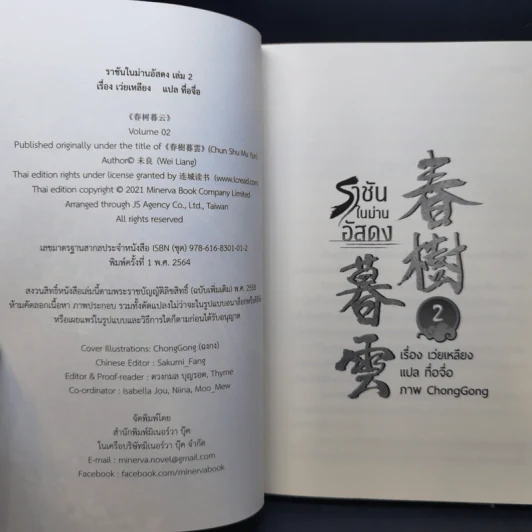 ราชันในม่านอัสดง เล่ม 2
เรื่อง เว่ยเหลียง แปล ที่อจื่อ
《春树暮云》
Volume 02
Published originally under the title of《春樹暮雲》(Chun Shu Mu Yun)
Author© 未良 (Wei Liang)
Thai edition rights under license granted by 连城读书 (www.lcread.com)
Thai edition copyright © 2021 Minerva Book Company Limited
Arranged through JS Agency Co., Ltd., Taiwan
All rights reserved
เลขมาตรฐานสากลประจำหนังสือ ISBN (ชุด) 978-616-8301-01-2
พิมพ์ครั้งที่ 1 พ.ศ. 2564
สงวนลิขสิทธิ์หนังสือเล่มนี้ตามพระราชบัญญัติลิขสิทธิ์ (ฉบับเพิ่มเติม) พ.ศ. 2558
ห้ามคัดลอกเนื้อหา ภาพประกอบ รวมทั้งดัดแปลงไม่ว่าจะในรูปแบบอนาล็อกหรือดิจิทัล
หรือเผยแพร่ในรูปแบบและวิธีการใดก็ตามก่อนได้รับอนุญาต
Cover Illustrations: ChongGong (ฉงกง)
Chinese Editor : Sakumi_Fang
Editor & Proof-reader : ดวงกมล บุญรอด, Thyme
Co-ordinator : Isabella Jou, Niina, Moo_Mew
จัดพิมพ์โดย
สำนักพิมพ์มิเนอร์วา บุ๊ค
ในเครือบริษัทมิเนอร์วา บุ๊ค จำกัด
E-mail : minerva.novel@gmail.com
Facebook : facebook.com/minervabook
春樹
暮雲
ราชัน
ในม่าน
อัสดง
2
เรื่อง เว่ยเหลียง
แปล ที่อจื่อ
ภาพ ChongGong